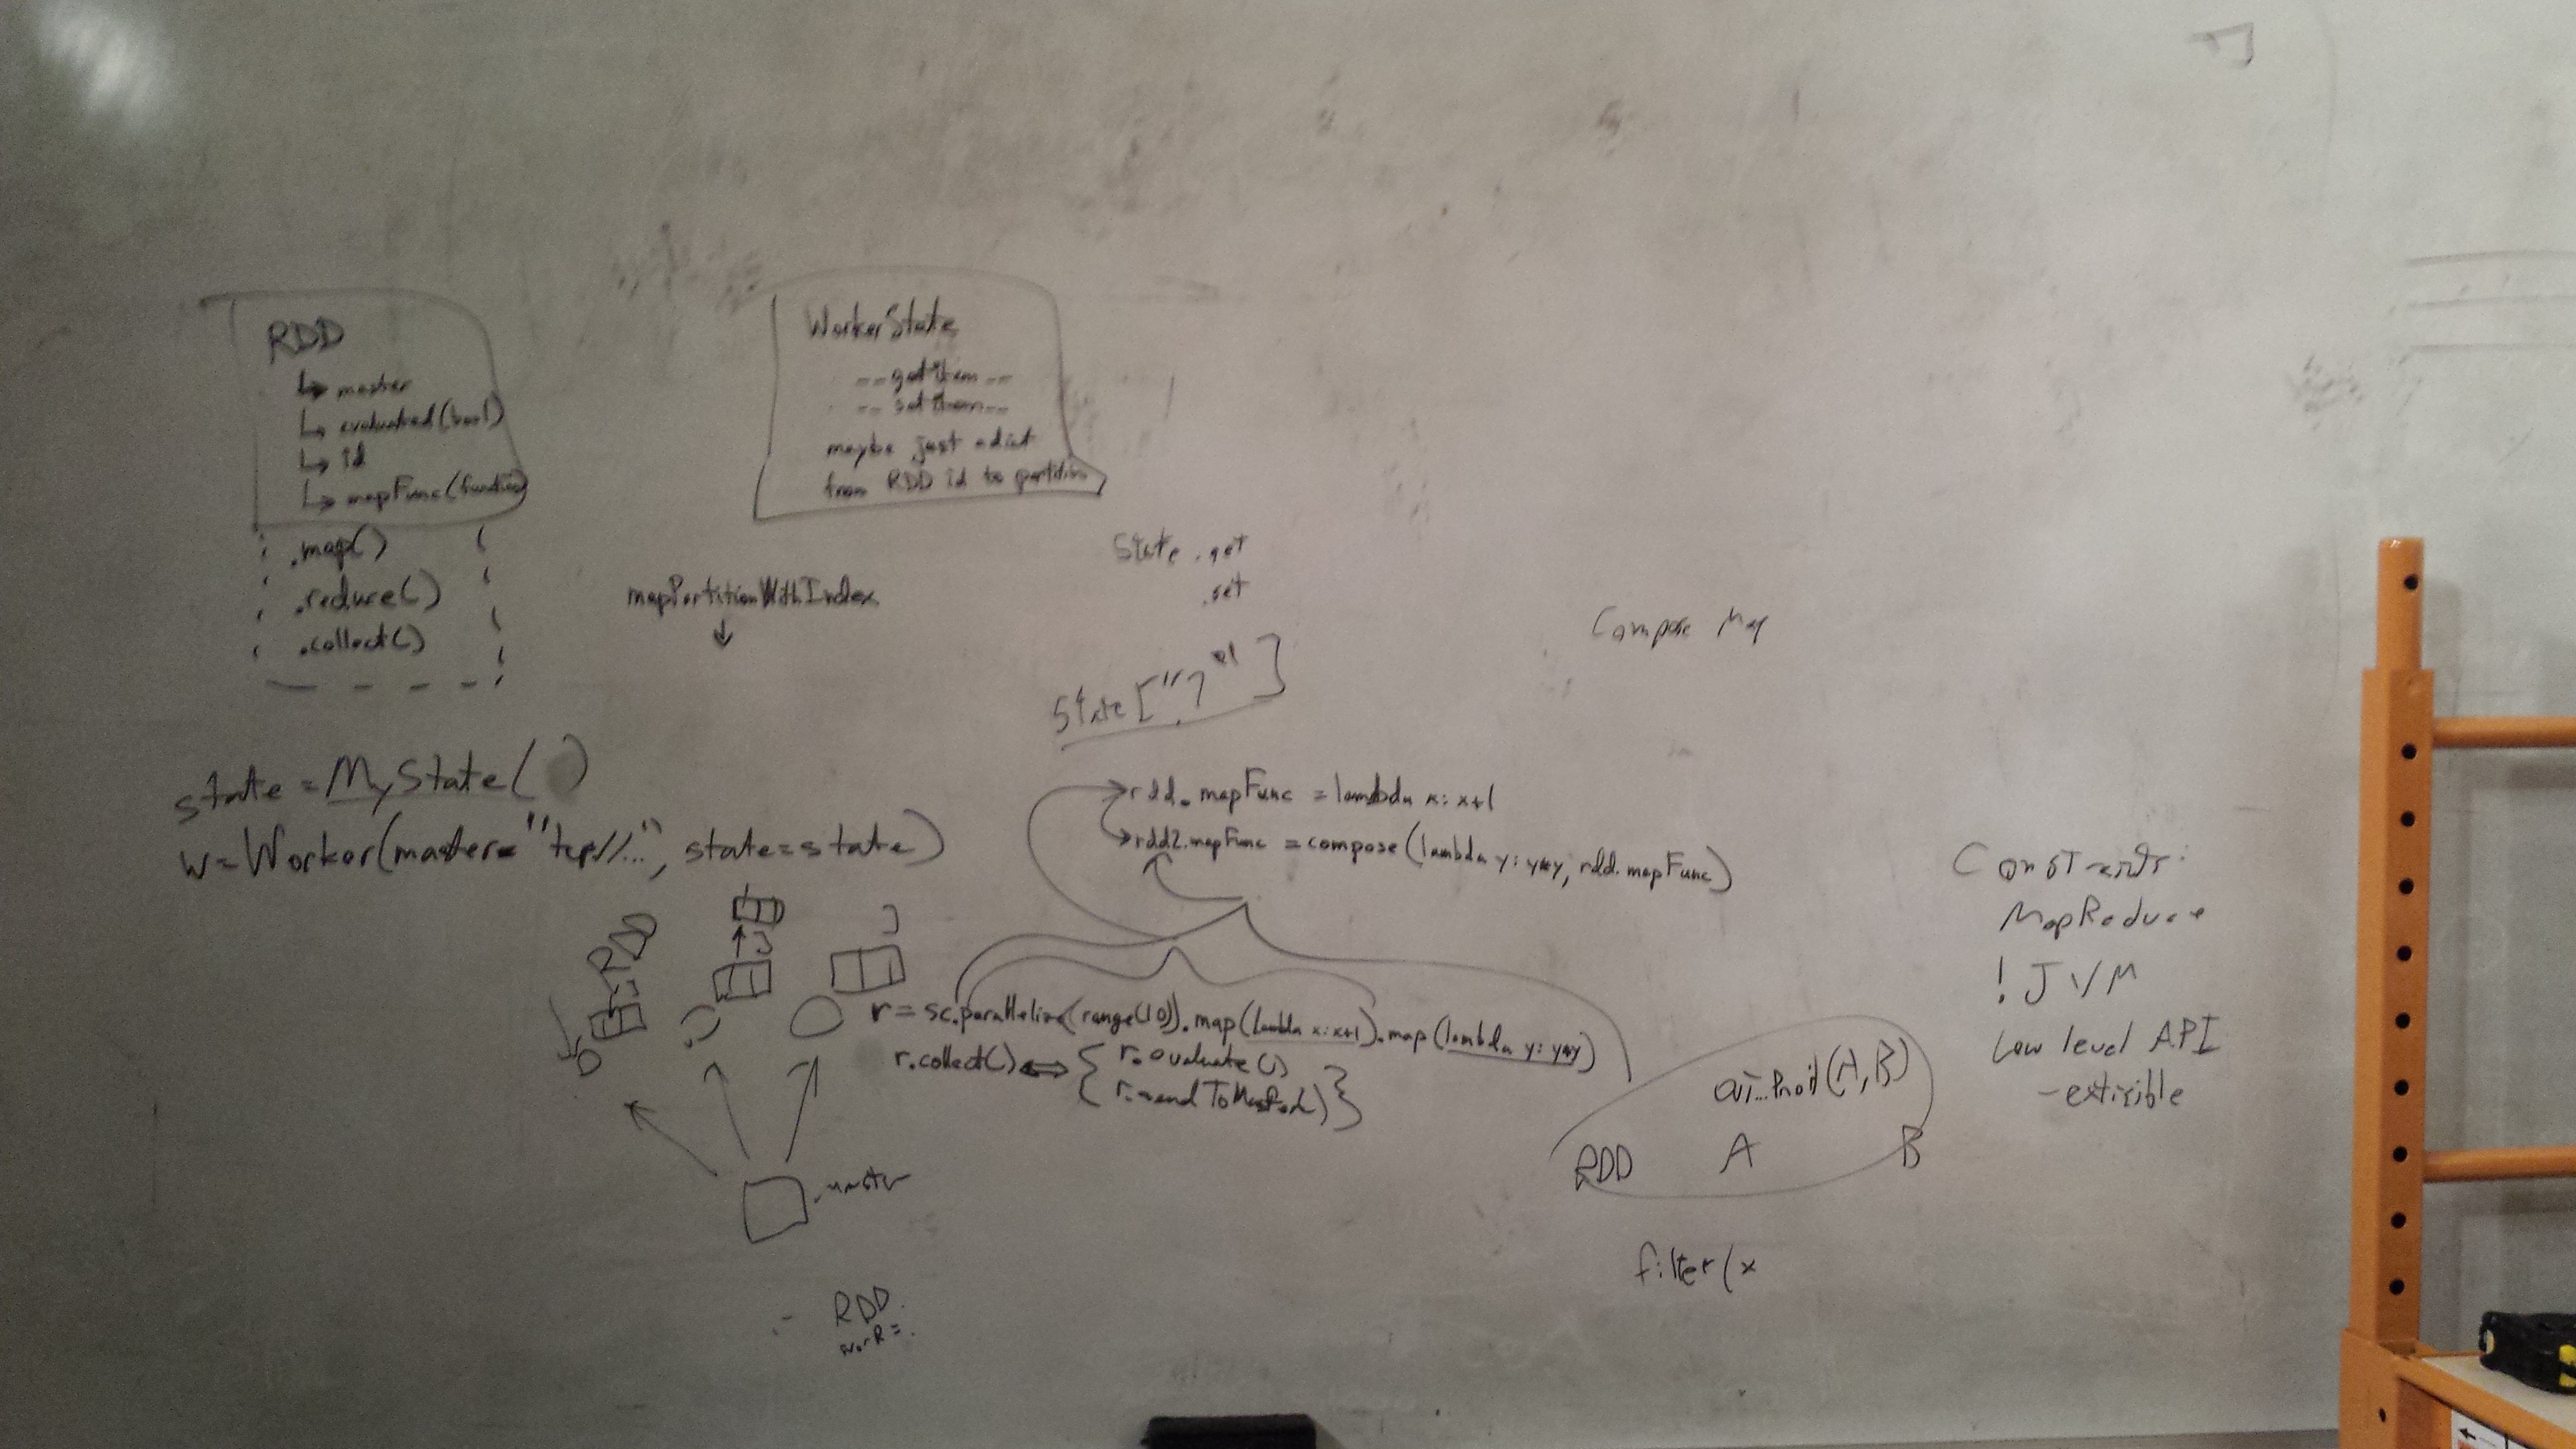 RDD
↳ master
↳ evaluated (bool)
↳ id
↳ mapFunc (function)
.map()
.reduce()
.collect()
WorkerState
--getitem--
--setitem--
maybe just a dict
from RDD id to partition
mapPartitionWithIndex
↓
State .get
.set
State["?"]
Compose Map
state = MyState( )
w=Worker(master="tcp//...", state=state)
rdd.mapFunc = lambda x: x+1
rdd2.mapFunc = compose(lambda y: y*y, rdd.mapFunc)
RDD
r = sc.parallelize(range(10)).map(lambda x: x+1).map(lambda y: y*y)
r.collect() ⟺ { r.evaluate()
r.sendToMaster() }
master
RDD
Constraints:
MapReduce
! JVM
Low level API
(A,B)
RDD A B
filter(x